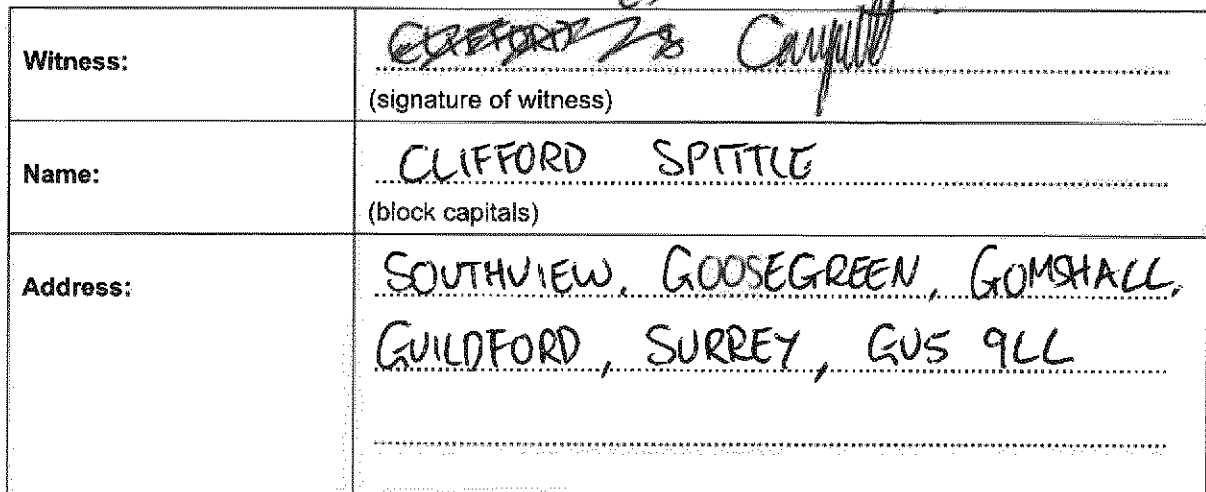 Witness:
(signature of witness)
Name:
CLIFFORD SPITTLE
(block capitals)
Address:
SOUTHVIEW, GOOSEGREEN, GOMSHALL,
GUILDFORD, SURREY, GU5 9LL